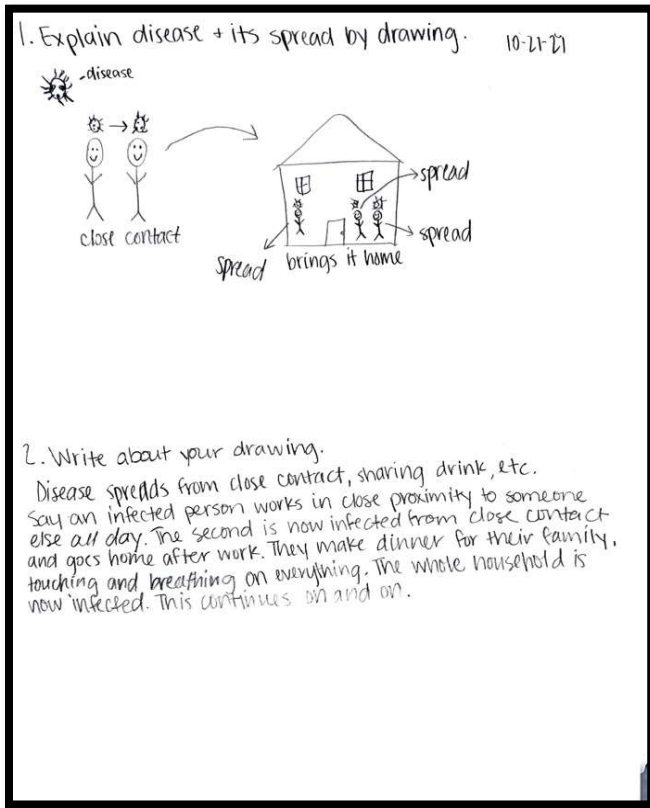 1. Explain disease + its spread by drawing.
10-21-21
-disease
close contact
spread
spread
spread
brings it home
2. Write about your drawing.
Disease spreads from close contact, sharing drink, etc.
Say an infected person works in close proximity to someone
else all day. The second is now infected from close contact
and goes home after work. They make dinner for their family,
touching and breathing on everything. The whole household is
now infected. This continues on and on.